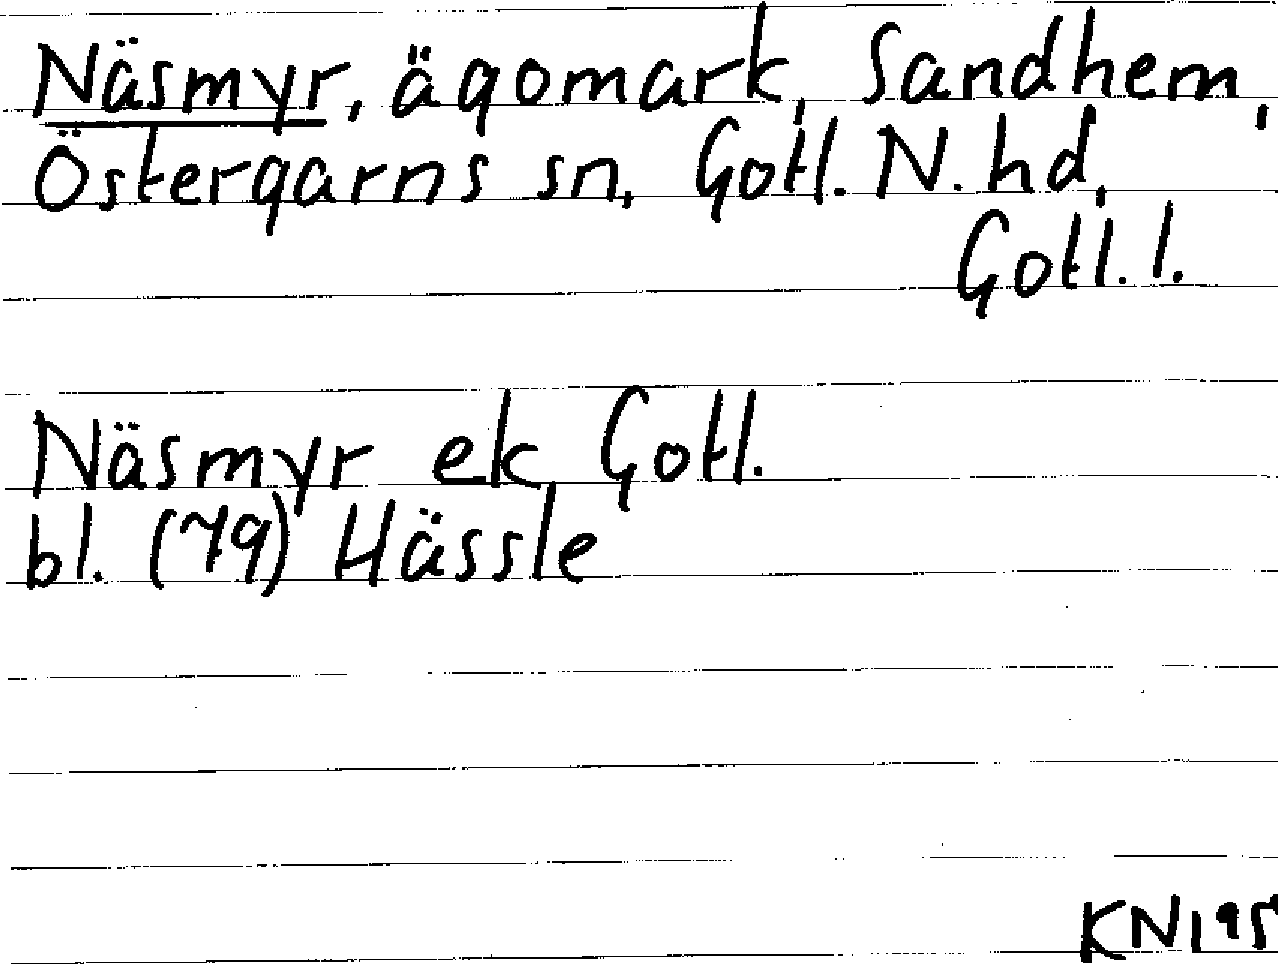 Näsmyr, ägomark, Sandhem,
Östergarns sn, Gotl. N. hd,
Gotl. l.
Näsmyr ek Gotl.
bl. (79) Hässle